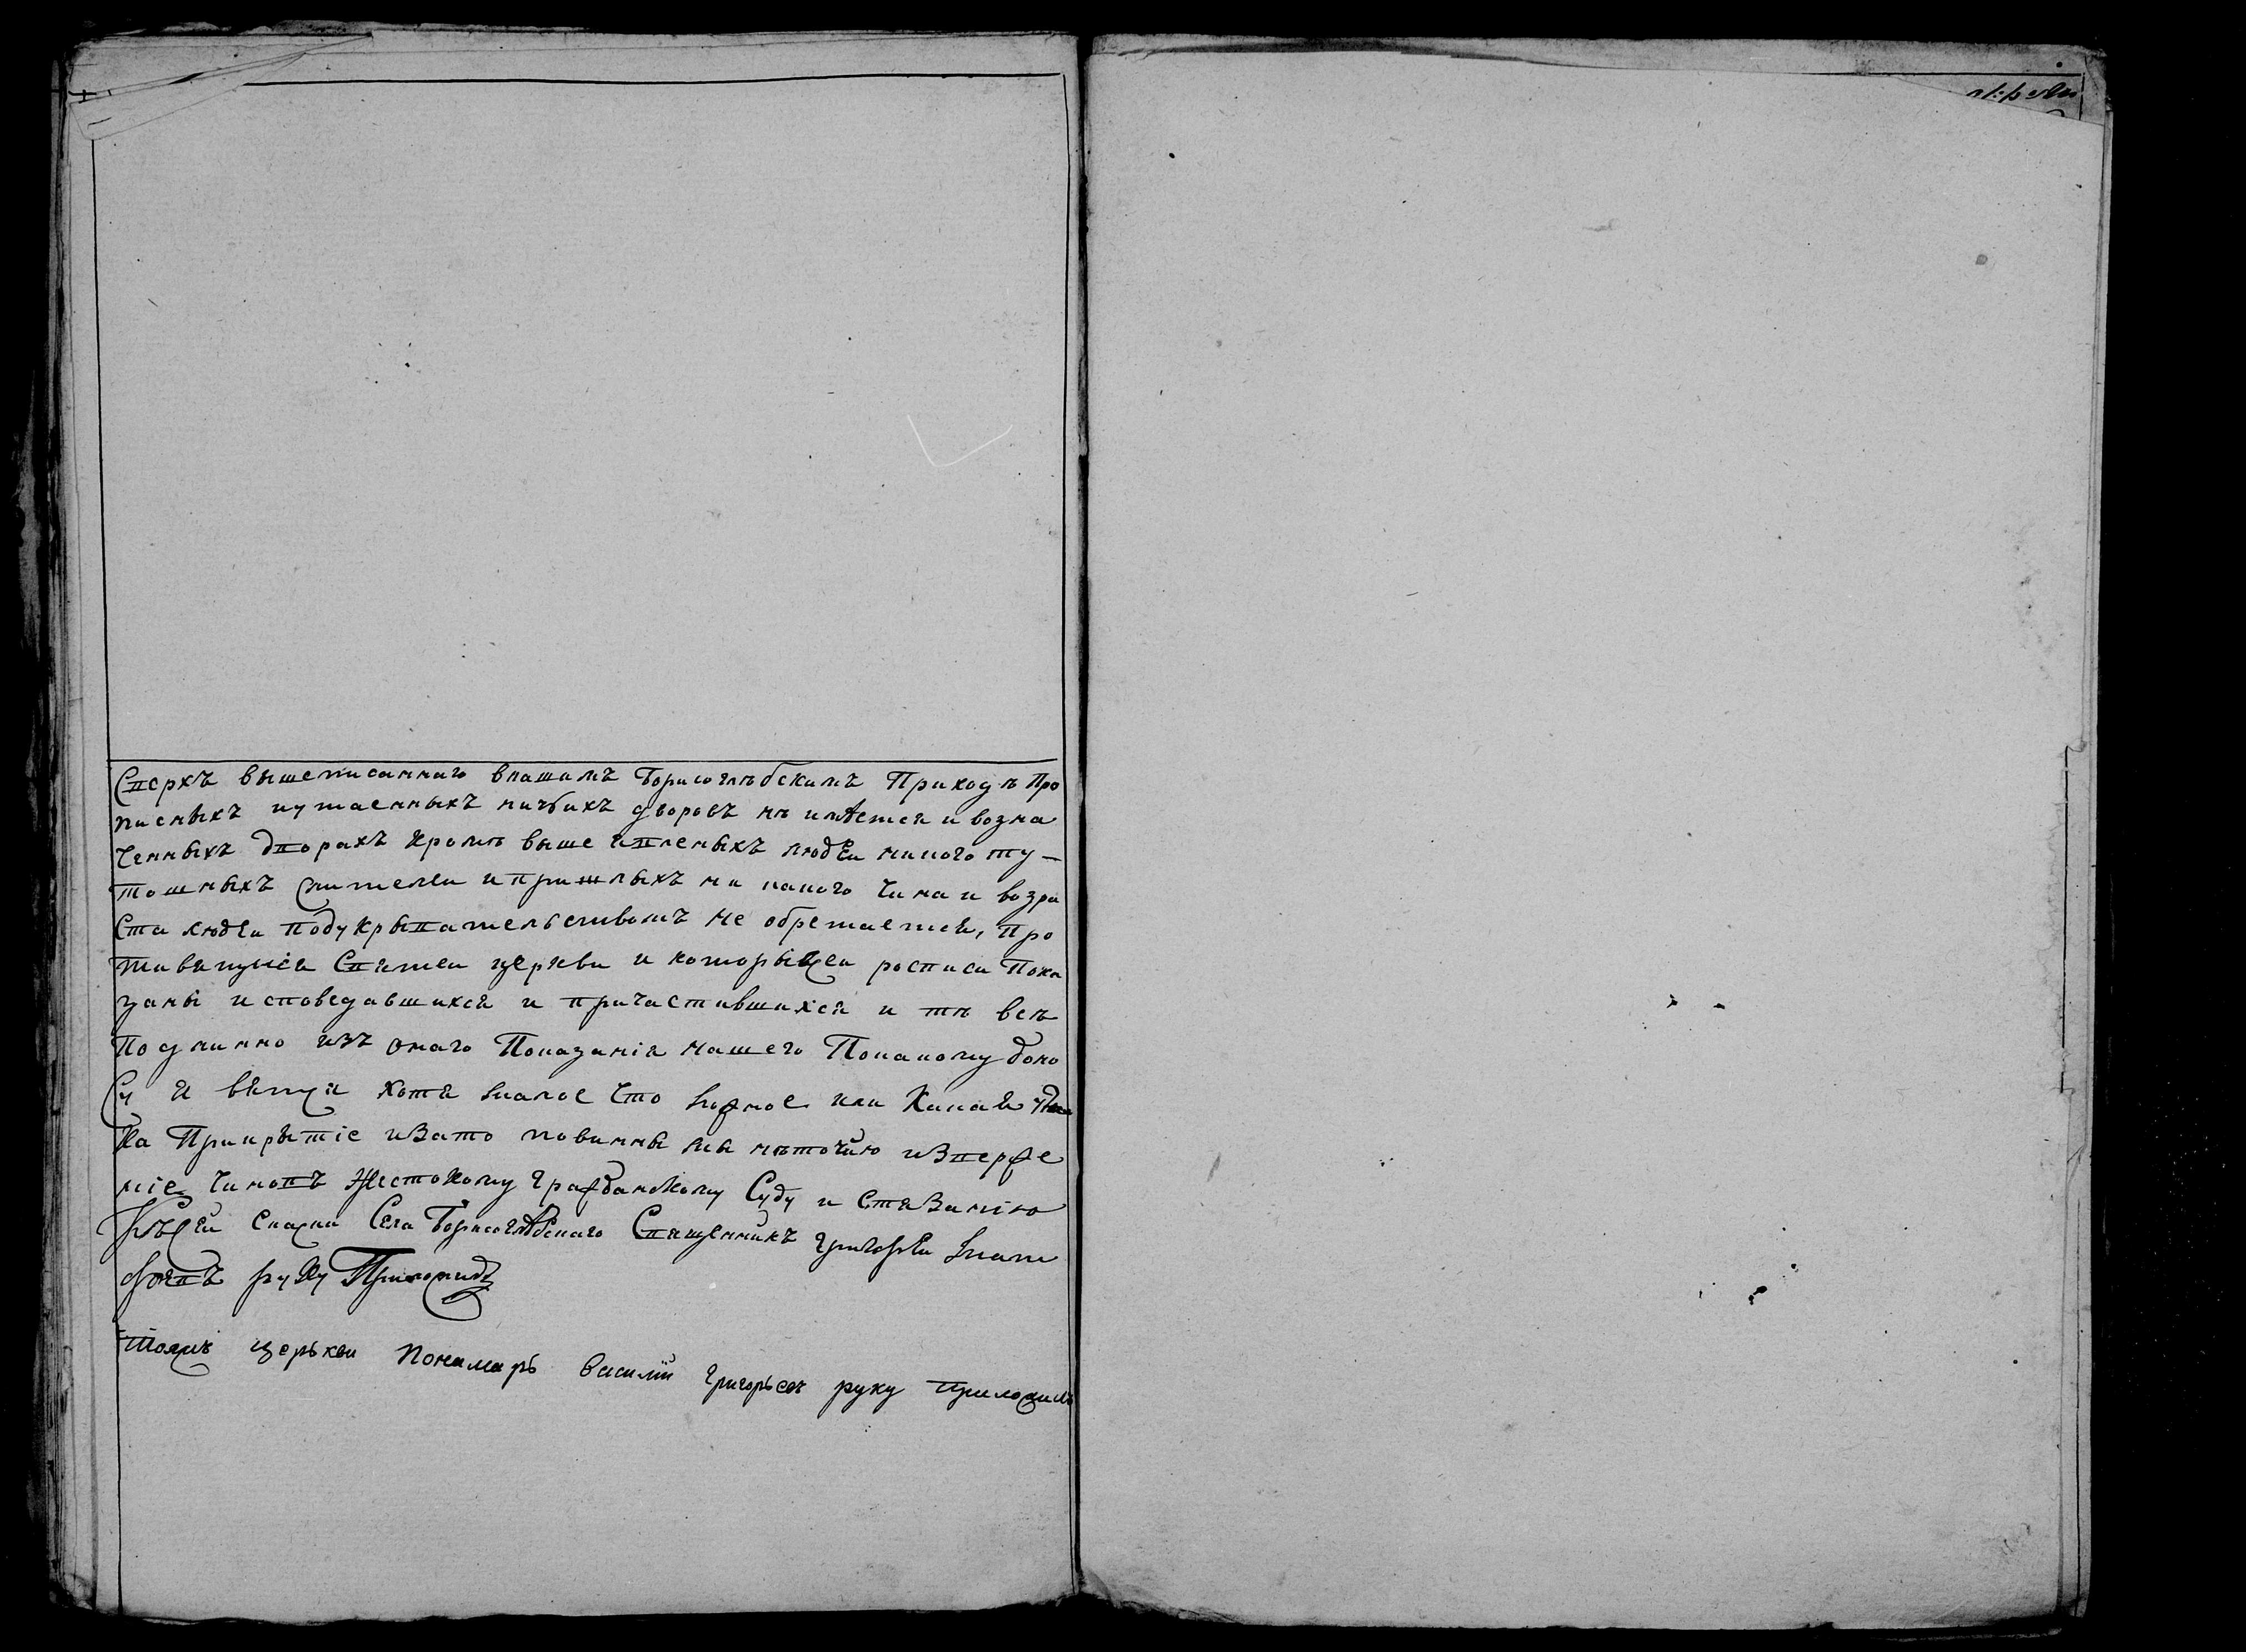 Сверхъ вышеписаннаго внашимъ Борисоглѣбскимъ Приходѣ Про
писныхъ иутаенныхъ ничьихъ дворовъ нѣ имѣется и возна
ченныхъ дворахъ кромѣ выше явленыхъ людеи никого ту–
тошныхъ жителеи ипришлыхъ ни какого чина и возра
Ста людеи подукрывательствомъ не обретается, Про
тивящися Святеи церкви и которы всеи росписи Пока
заны исповедавшихся и причастившихся и тѣ всѣ
Подлинно изъ онаго Показания нашего Покакому доно
Су и впутя хотя малое что ложное или Какая
На Прикрытіе изато повинны мы нѣточию изверже
ніе чиновъ Жестокому гражданскому Суду и Стязанию
Ксеи скаски Села Борисоглѣбскаго Священникъ григореи
руку Приложилъ
Тояжъ церькви пономарь василий григорьевъ руку приложилъ